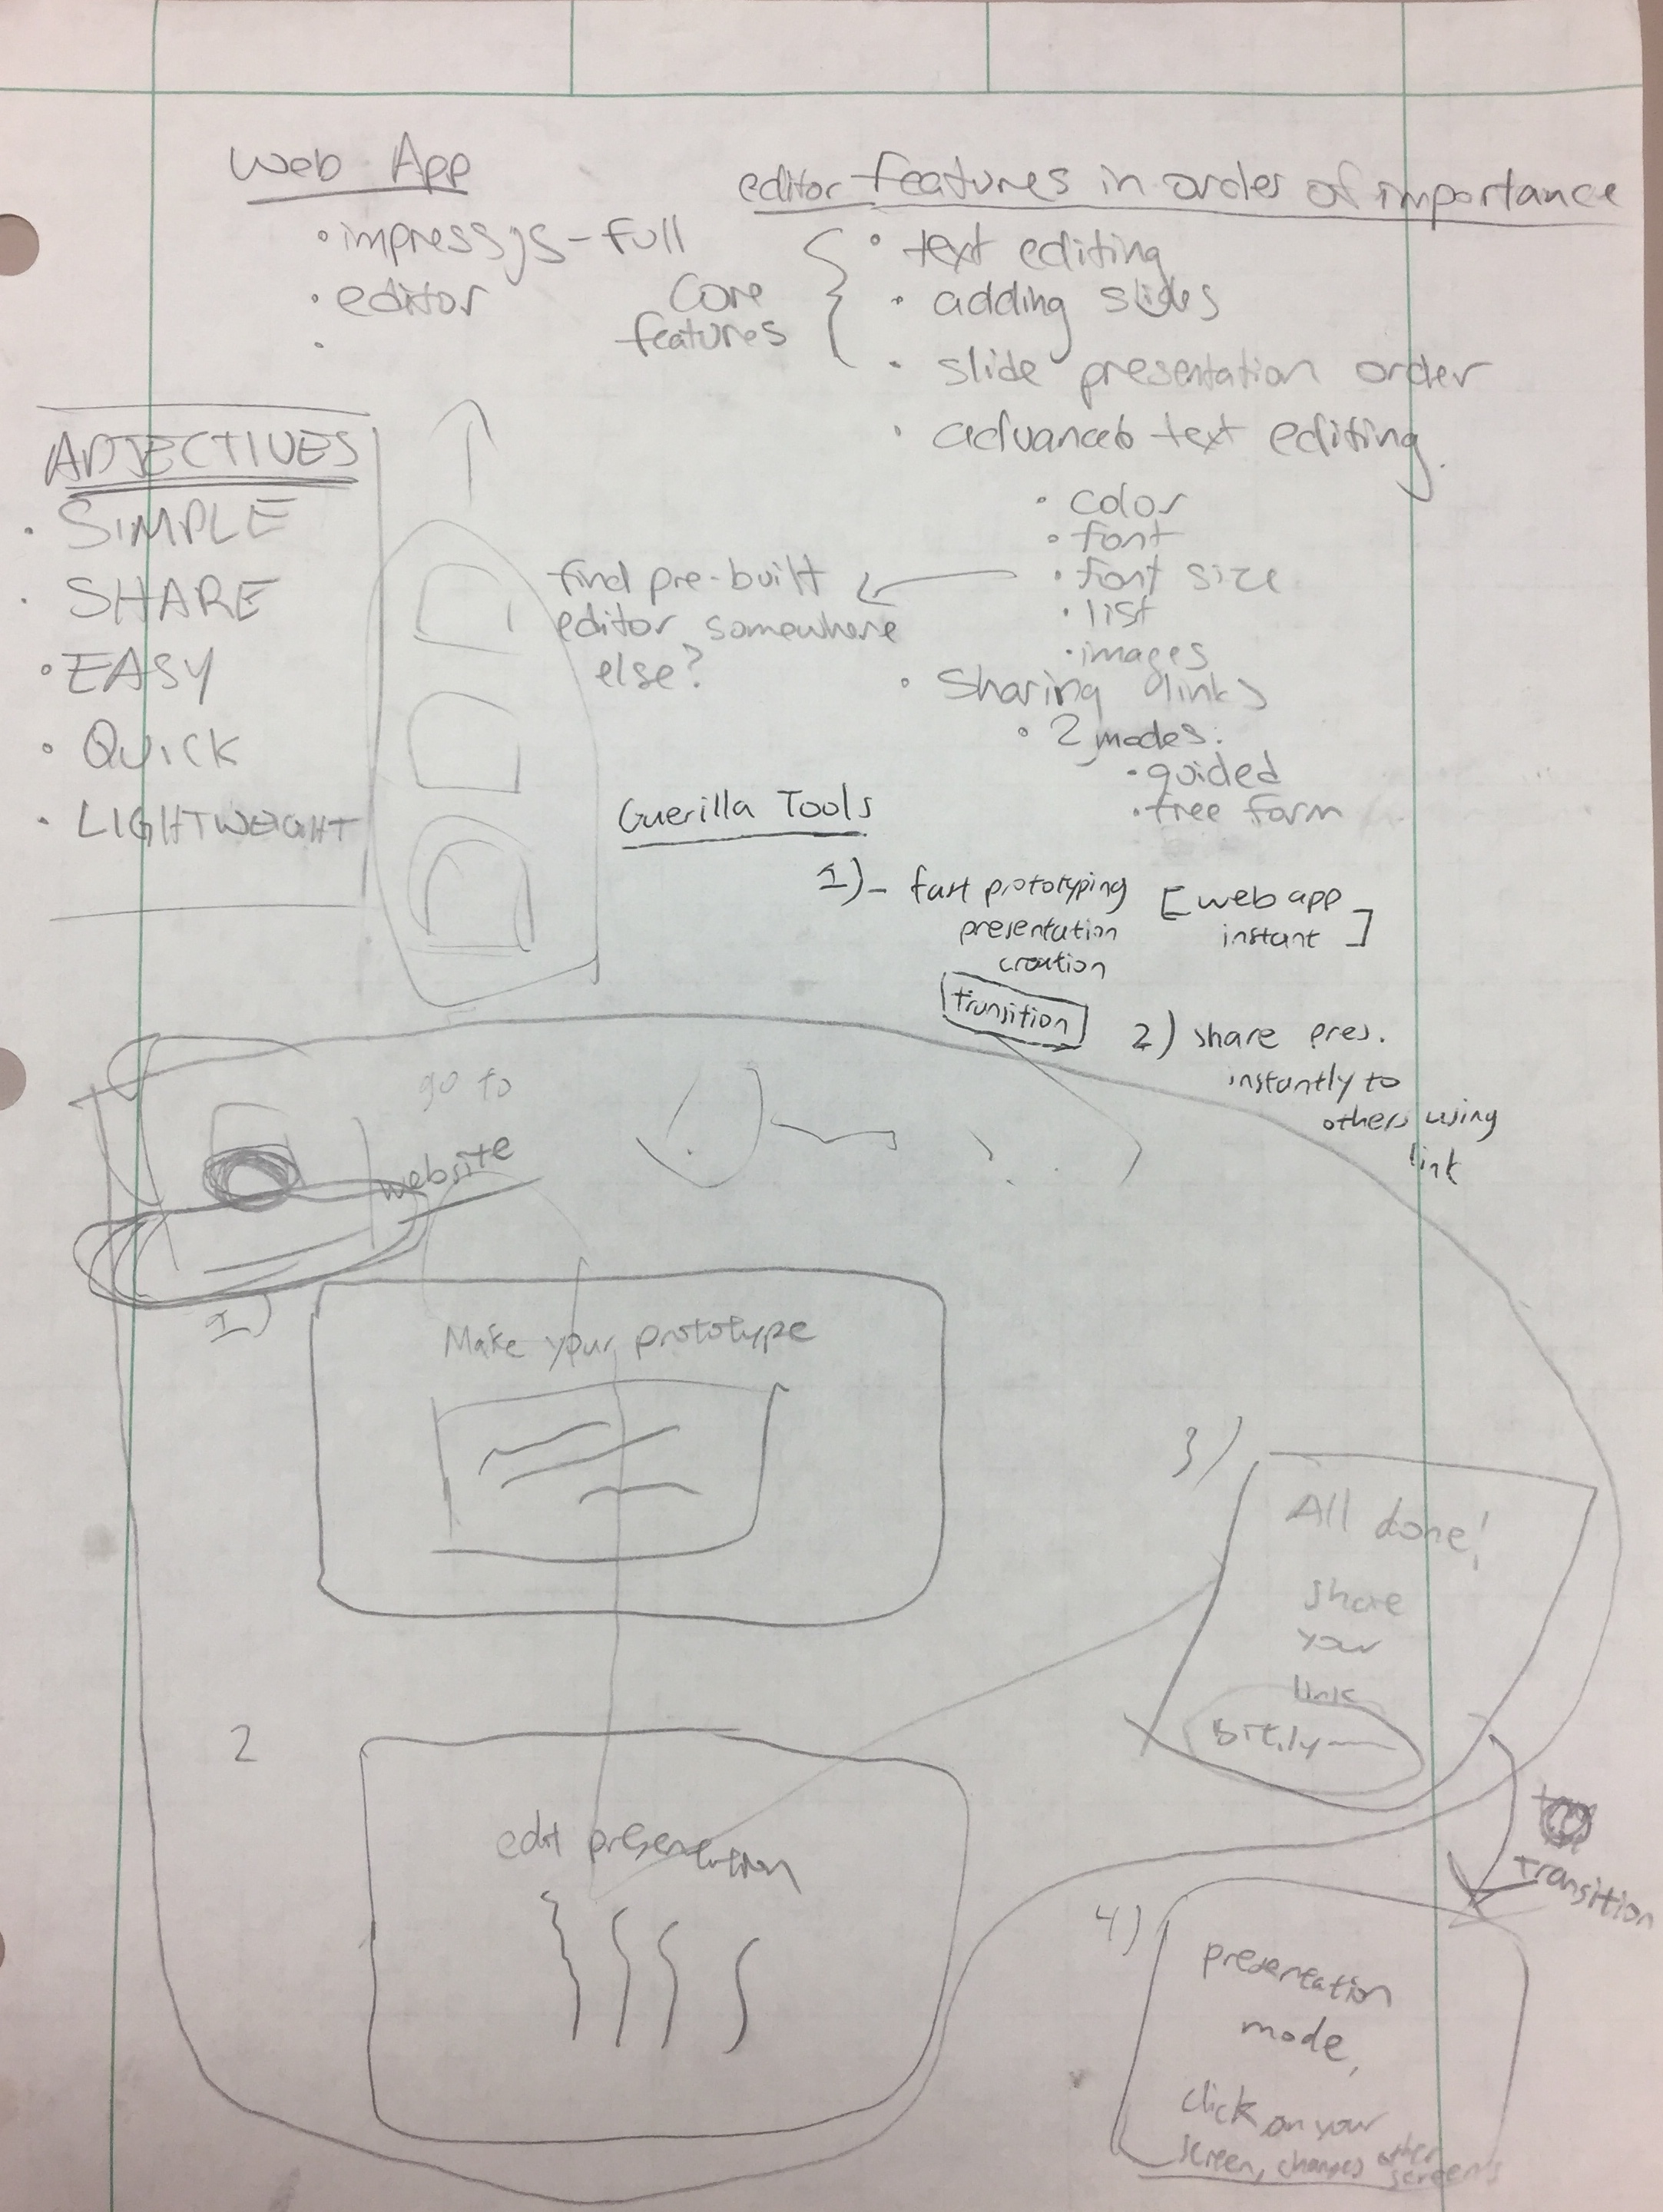 Web App
• impressjs-full
• editor
•
editor features in order of importance
Core
features
• text editing
• adding slides
• slide presentation order
• advanced text editing.
• color
• font
• font size
• list
• images
find pre-built
editor somewhere
else?
• Sharing links
• 2 modes:
• guided
• free form
ADJECTIVES
• SIMPLE
• SHARE
• EASY
• QUICK
• LIGHTWEIGHT
Guerilla Tools
1) - fast prototyping
presentation
creation
[web app
instant]
transition
2) share pres.
instantly to
others using
link
go to
website
1)
Make your prototype
2
edit presentation
3)
All done!
share
your
link
Bit.ly
transition
4)
presentation
mode,
click on your
screen, changes other
screens